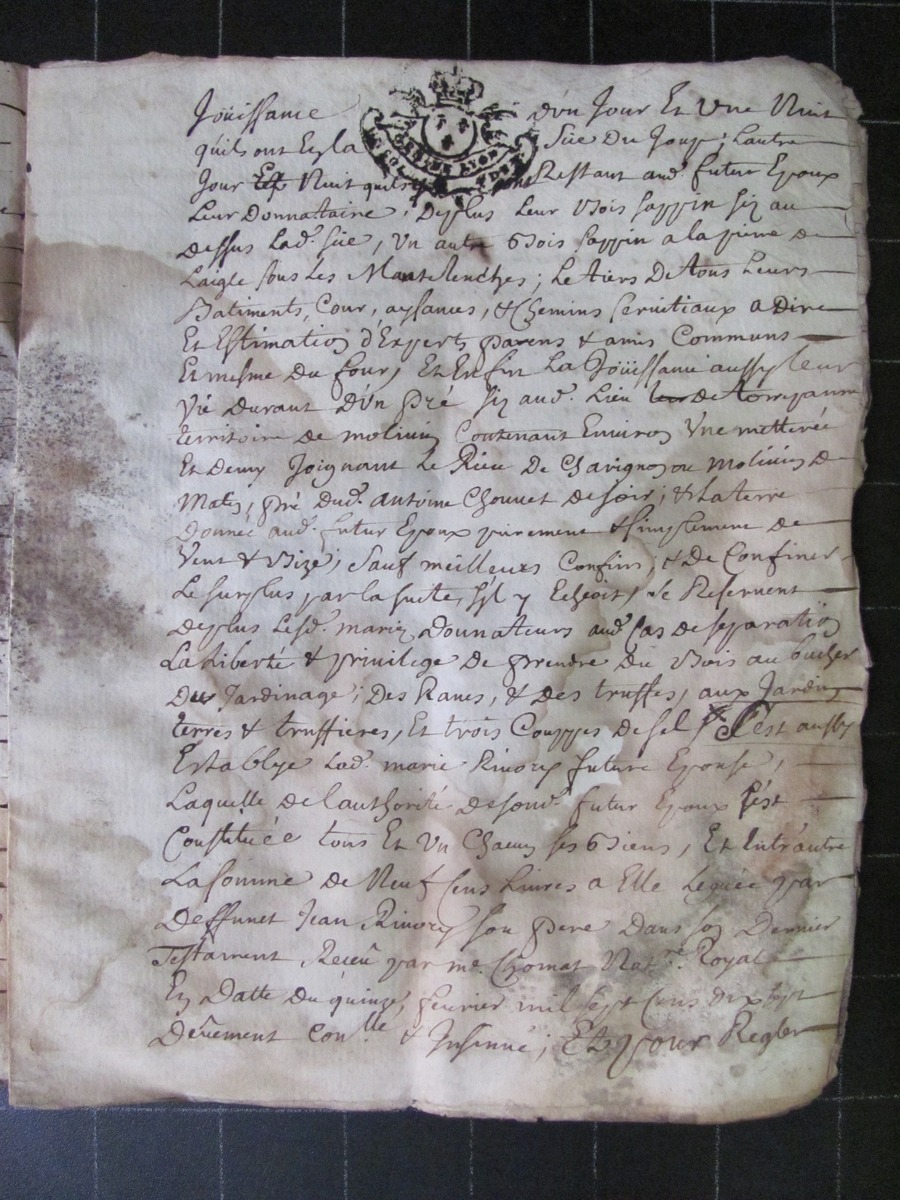 Joüissance d'un Jour Et Une Nuit
quils ont En la Sie Du Joug; Lautre
GNRLTE LYON
SOL DE
Jour Et Nuit quils Restant aud. futur Epoux
Leur Donnattaire; Deplus Leur Bois sappin siz au
dessus Lad. sie, Un autre Bois sappin a la pierre de
Laigle sous Les ; Le tiers De tous Leurs
Batiments, Cour, aysances, & Chemins servitiaux a Dire
Et Estimation d'Experts parens & amis Communs
Et mesme du four, Et Enfin La Joüissance aussy leur
Vie Durant D'un pré siz aud. Lieu de
territoire de molinin Contenant Environ Une metterée
Et Demy Joignant Le Rieu De Chavignon ou molinin de
Mats, pré dud. antoine Chouvet de soir; & La terre
Donnée aud. futur Epoux purement & simplement de
Vent & Bize; Sauf meilleurs Confins, & De Confiner
Le surplus par la suite, s'yl y Echeoit, se Reservent
deplus Lesd. mariez Donnateurs aud. Cas de separation
La Liberté & privilege de prendre du Bois au bucher
Du Jardinage; Des Raves, & des truffes, aux Jardins
terres & truffieres, Et trois Couppes de sel S'est aussy
Establye Lad. marie Rivory future Epouse,
Laquelle de l'authorité de sond. futur Epoux s'ést
Constituée tous Et Un Chacun ses Biens, Et Entr'autre
La somme de Neuf Cens Livres a Elle Leguée par
Deffunct Jean Rivory son pere Dans son Dernier
Testament Receu par me. Chomat Not.re Royal
En Datte du quinze fevrier mil sept Cens dix sept
Deüement Con.llé & Insinué; Et pour Regler